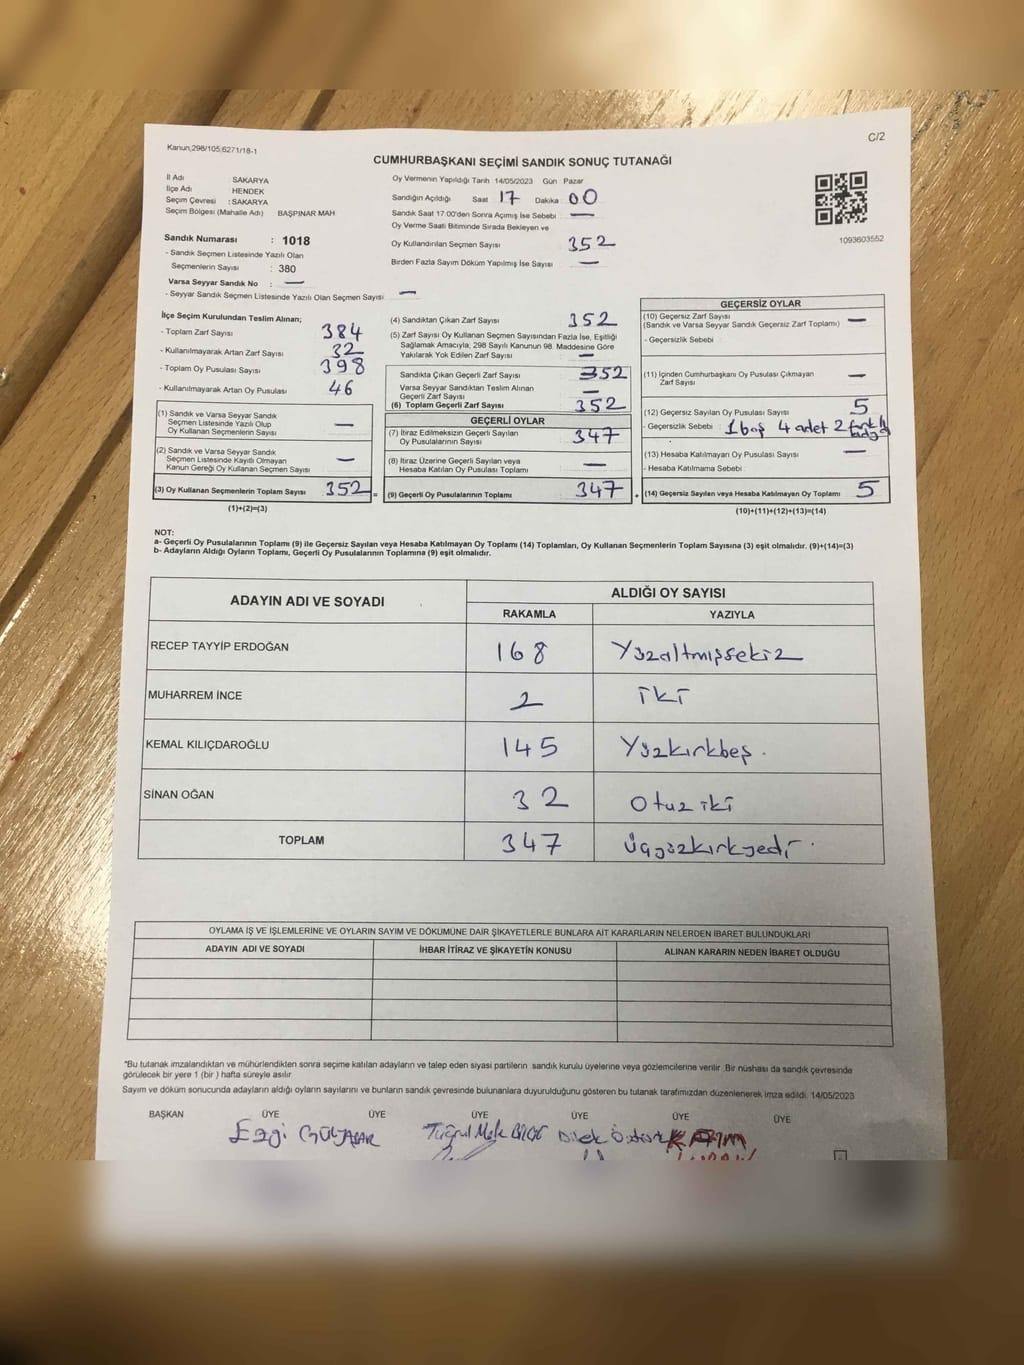 C/2
Kanun,298/105;6271/18-1
CUMHURBAŞKANI SEÇİMİ SANDIK SONUÇ TUTANAĞI
İl Adı SAKARYA
İlçe Adı HENDEK
Seçim Çevresi : SAKARYA
Seçim Bölgesi (Mahalle Adı) BAŞPINAR MAH
Sandık Numarası : 1018
- Sandık Seçmen Listesinde Yazılı Olan
Seçmenlerin Sayısı : 380
Varsa Seyyar Sandık No : —
- Seyyar Sandık Seçmen Listesinde Yazılı Olan Seçmen Sayısı —
Oy Vermenin Yapıldığı Tarih 14/05/2023 Gün Pazar
Sandığın Açıldığı Saat 17 Dakika 00
Sandık Saat 17:00'den Sonra Açımış İse Sebebi —
Oy Verme Saati Bitiminde Sırada Bekleyen ve
Oy Kullandırılan Seçmen Sayısı 352
Birden Fazla Sayım Döküm Yapılmış İse Sayısı —
1093603552
İlçe Seçim Kurulundan Teslim Alınan;
- Toplam Zarf Sayısı 384
- Kullanılmayarak Artan Zarf Sayısı 32
- Toplam Oy Pusulası Sayısı 398
- Kullanılmayarak Artan Oy Pusulası 46
(1) Sandık ve Varsa Seyyar Sandık
Seçmen Listesinde Yazılı Olup
Oy Kullanan Seçmenlerin Sayısı —
(2) Sandık ve Varsa Seyyar Sandık
Seçmen Listesinde Kayıtlı Olmayan
Kanun Gereği Oy Kullanan Seçmen Sayısı —
(3) Oy Kullanan Seçmenlerin Toplam Sayısı 352 =
(1)+(2)=(3)
(4) Sandıktan Çıkan Zarf Sayısı 352
(5) Zarf Sayısı Oy Kullanan Seçmen Sayısından Fazla İse, Eşitliği
Sağlamak Amacıyla; 298 Sayılı Kanunun 98. Maddesine Göre
Yakılarak Yok Edilen Zarf Sayısı —
Sandıkta Çıkan Geçerli Zarf Sayısı 352
Varsa Seyyar Sandıktan Teslim Alınan
Geçerli Zarf Sayısı —
(6) Toplam Geçerli Zarf Sayısı 352
GEÇERLİ OYLAR
(7) İtiraz Edilmeksizin Geçerli Sayılan
Oy Pusulalarının Sayısı 347
(8) İtiraz Üzerine Geçerli Sayılan veya
Hesaba Katılan Oy Pusulası Toplamı —
(9) Geçerli Oy Pusulalarının Toplamı 347 +
GEÇERSİZ OYLAR
(10) Geçersiz Zarf Sayısı
(Sandık ve Varsa Seyyar Sandık Geçersiz Zarf Toplamı) —
- Geçersizlik Sebebi :
(11) İçinden Cumhurbaşkanı Oy Pusulası Çıkmayan
Zarf Sayısı —
(12) Geçersiz Sayılan Oy Pusulası Sayısı 5
- Geçersizlik Sebebi : 1 boş 4 adet 2 farklı
(13) Hesaba Katılmayan Oy Pusulası Sayısı —
- Hesaba Katılmama Sebebi :
(14) Geçersiz Sayılan veya Hesaba Katılmayan Oy Toplamı 5
(10)+(11)+(12)+(13)=(14)
NOT:
a- Geçerli Oy Pusulalarının Toplamı (9) ile Geçersiz Sayılan veya Hesaba Katılmayan Oy Toplamı (14) Toplamları, Oy Kullanan Seçmenlerin Toplam Sayısına (3) eşit olmalıdır. (9)+(14)=(3)
b- Adayların Aldığı Oyların Toplamı, Geçerli Oy Pusulalarının Toplamına (9) eşit olmalıdır.
ADAYIN ADI VE SOYADI ALDIĞI OY SAYISI
RAKAMLA YAZIYLA
RECEP TAYYİP ERDOĞAN 168 Yüzaltmışsekiz
MUHARREM İNCE 2 iki
KEMAL KILIÇDAROĞLU 145 Yüzkırkbeş.
SİNAN OĞAN 32 Otuz iki
TOPLAM 347 Üçyüzkırkyedi.
OYLAMA İŞ VE İŞLEMLERİNE VE OYLARIN SAYIM VE DÖKÜMÜNE DAİR ŞİKAYETLERLE BUNLARA AİT KARARLARIN NELERDEN İBARET BULUNDUKLARI
ADAYIN ADI VE SOYADI İHBAR İTİRAZ VE ŞİKAYETİN KONUSU ALINAN KARARIN NEDEN İBARET OLDUĞU
*Bu tutanak imzalandıktan ve mühürlendikten sonra seçime katılan adayların ve talep eden siyasi partilerin sandık kurulu üyelerine veya gözlemcilerine verilir. Bir nüshası da sandık çevresinde
görülecek bir yere 1 (bir ) hafta süreyle asılır.
Sayım ve döküm sonucunda adayların aldığı oyların sayılarını ve bunların sandık çevresinde bulunanlara duyurulduğunu gösteren bu tutanak tarafımızdan düzenlenerek imza edildi. 14/05/2023
BAŞKAN ÜYE ÜYE ÜYE ÜYE ÜYE ÜYE
Ezgi Tuğrul Dilek